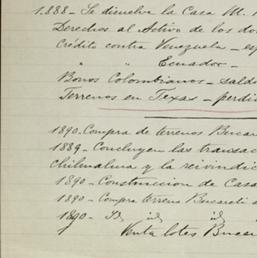 1888 - Se disuelve la Casa M.
Derechos al Activo de los do
Crédito contra Venezuela - es
" " Ecuador -
Bonos Colombianos - sald
Terrenos en Texas - perdi
1890 - Compra de terrenos Bucare
1889 - Concluyen las transac
Chihuahua y la reivindic
1890 - Construccion de Casa
1890 - Compra terreno Bucareli
1890 - Id id id
Venta lotes Bucar